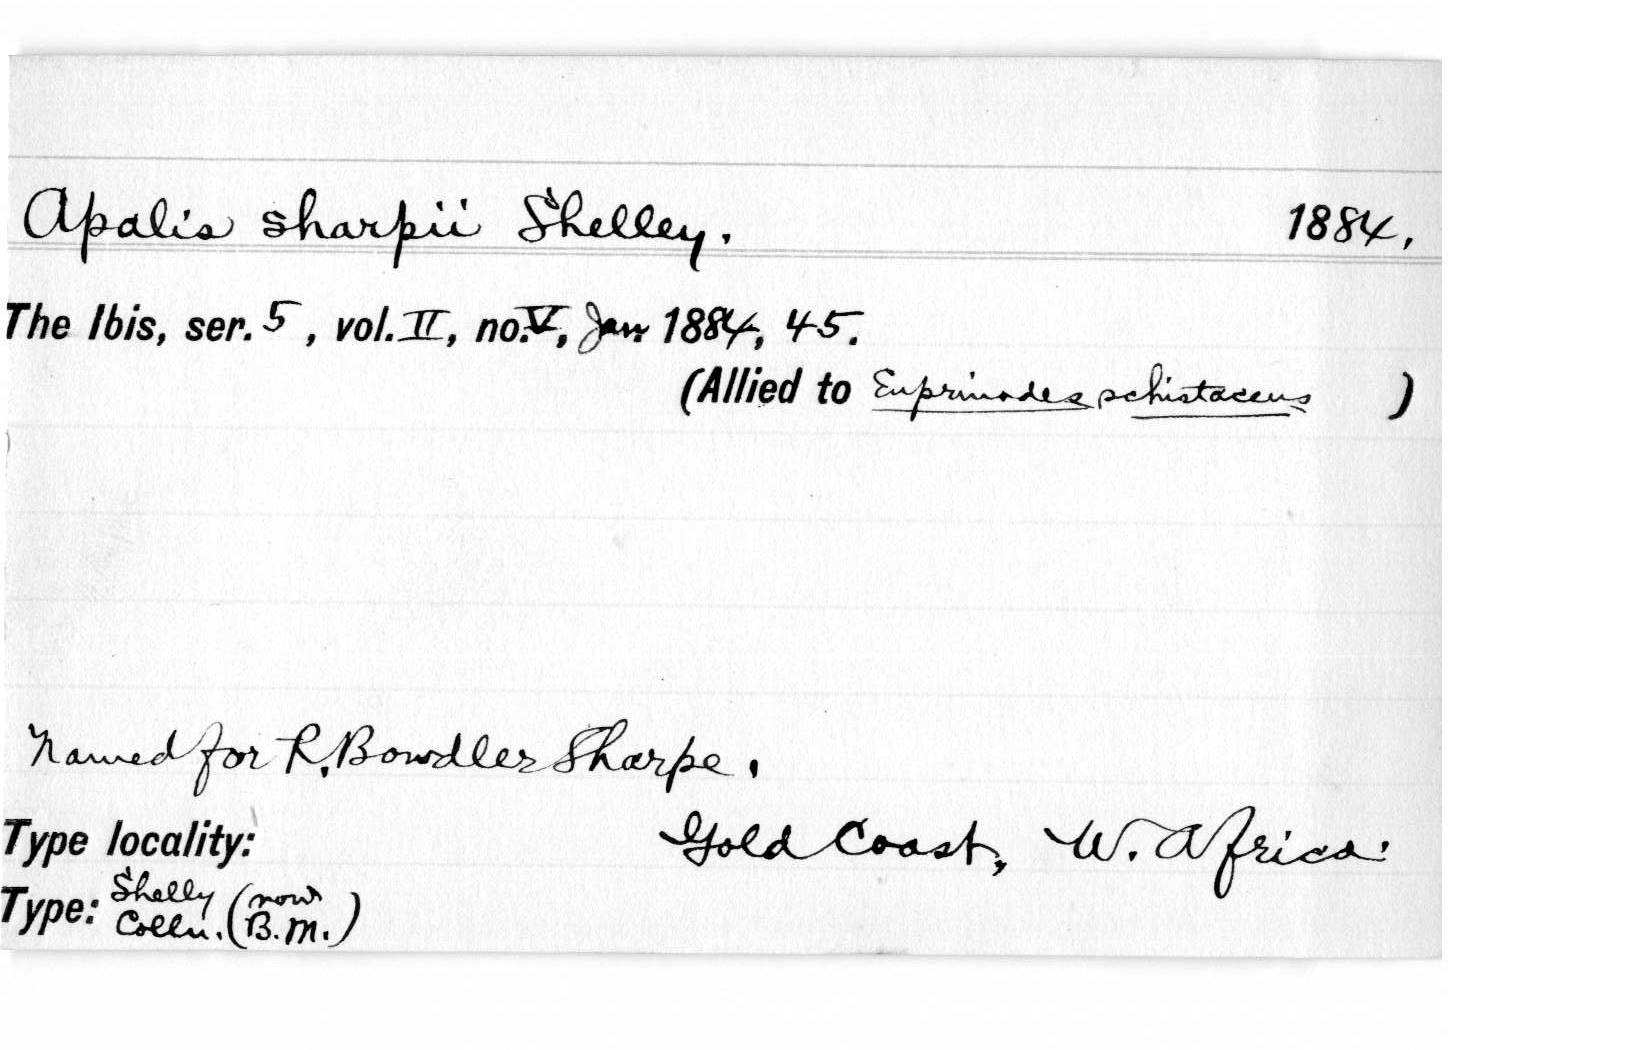 Apalis sharpii Shelley. 1884.
The Ibis, ser. 5, vol. II, no. V, Jan 1884, 45.
(Allied to Euprinodes schistaceus )
Named for R. Bowdler Sharpe.
Type locality: Gold Coast, W. Africa.
Type: Shelly Colln. (now B.M.)